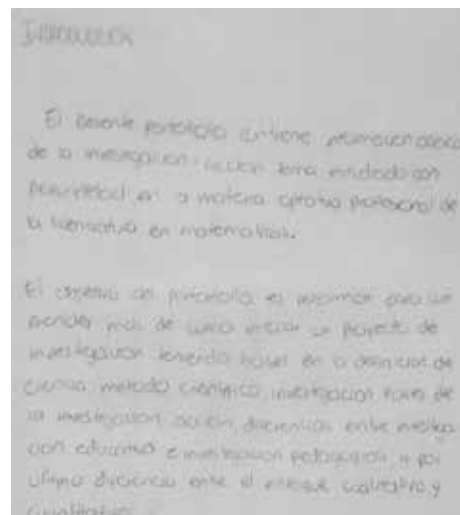 Introducción
El presente portafolio contiene información acerca
de la investigación acción tema estudiado con
en la materia optativa profesional de
la licenciatura en matemáticas.
El objetivo del portafolio es
más de como iniciar un proyecto de
investigación teniendo bases en la definición de
ciencia, método científico, investigación, fases de
la investigación acción, diferencias entre investiga
ción educativa e investigación pedagógica y por
último diferencia entre el enfoque cualitativo y
cuantitativo.